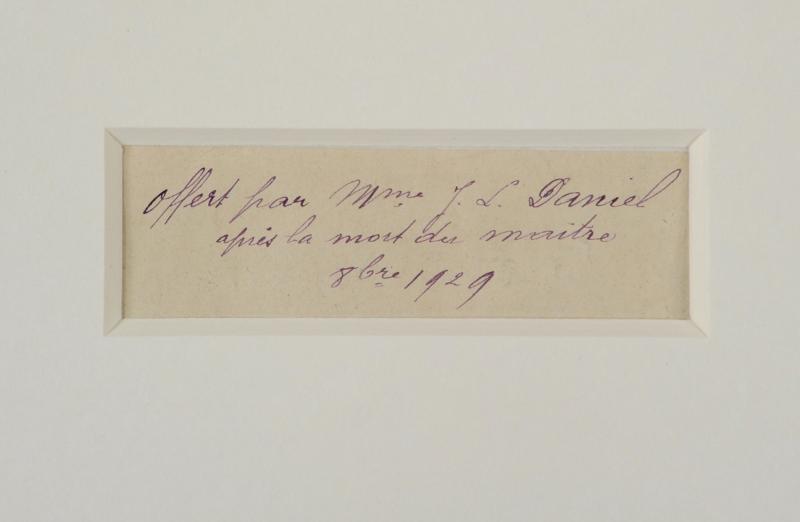 offert par Mme J. L. Daniel
après la mort du maitre
8bre 1929